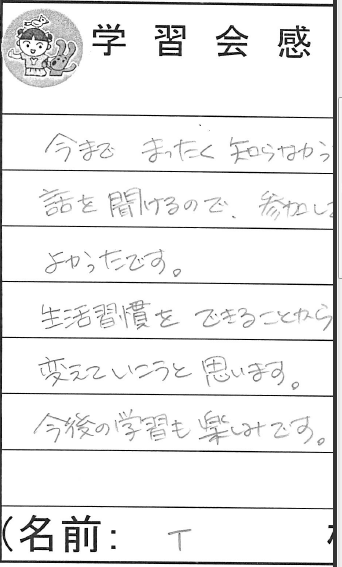 学習会感
今まで まったく 知らなかっ
話を聞けるので、参加して
よかったです。
生活習慣を できることから
変えていこうと思います。
今後の学習も楽しみです。
(名前: T